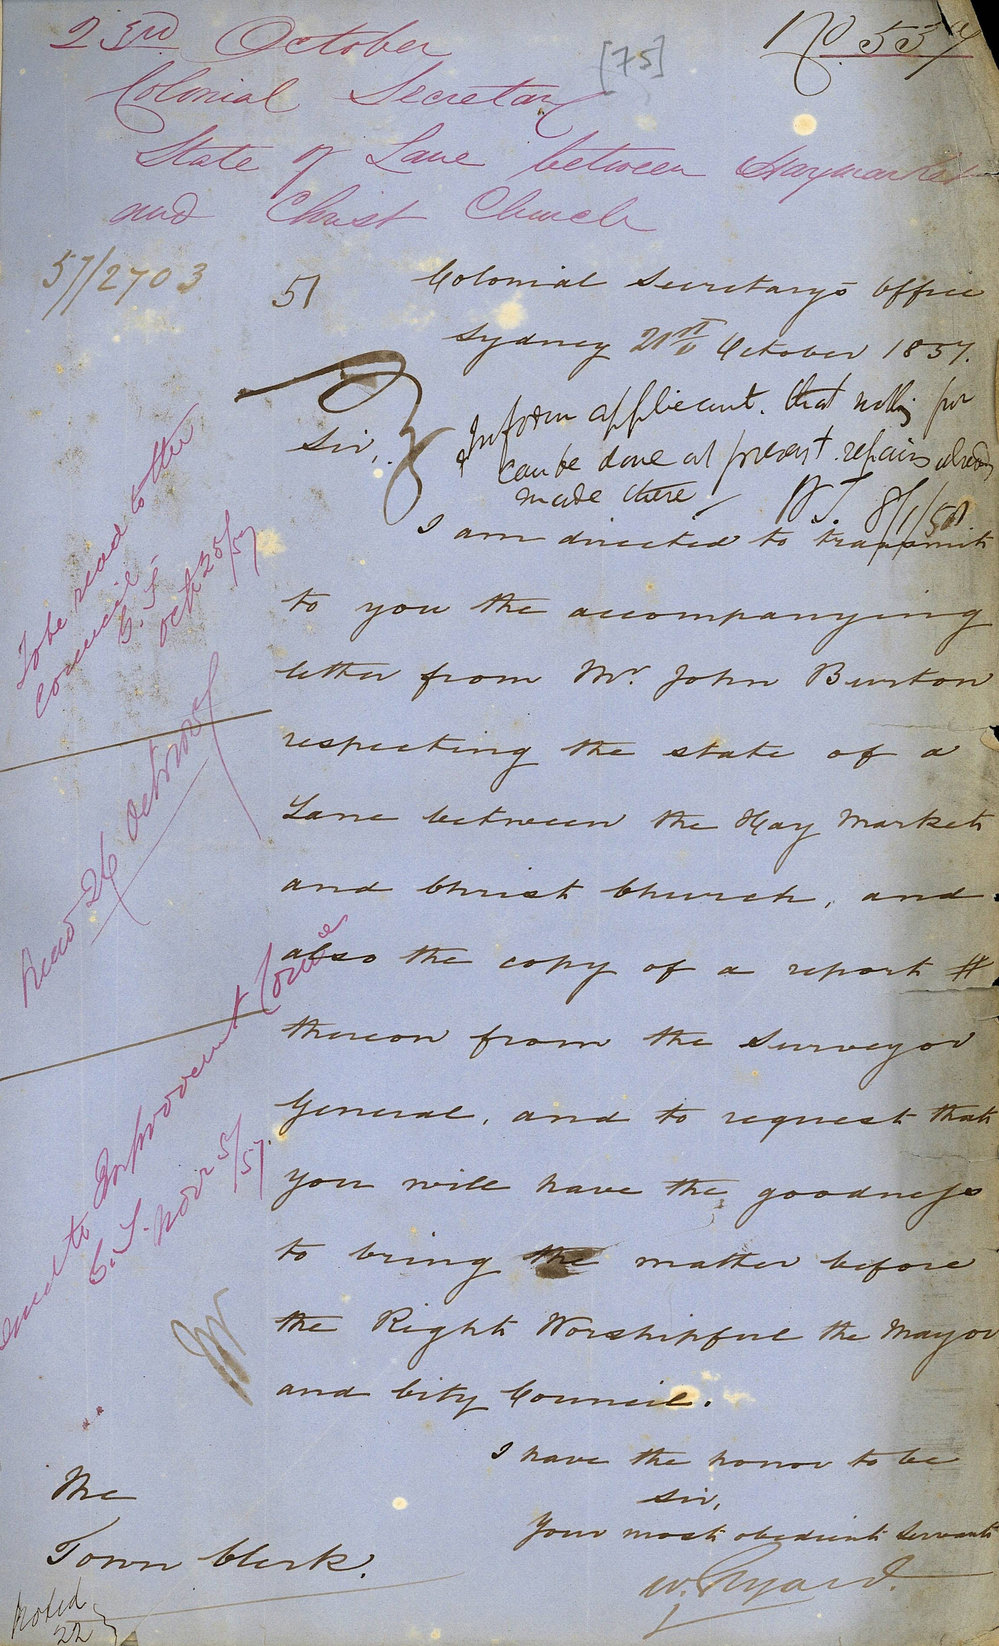 23rd October
No. 557
[75]
Colonial Secretary
State of Lane between Haymarket
and Christ Church
57/2703
51
Colonial Secretary's Office
Sydney 21st October 1857.
Sir,
Inform applicant. that nothing fur
can be done at present. repairs already
made there
8/1/58
I am directed to transmit
to you the accompanying
letter from Mr. John Burton
respecting the state of a
Lane between the Hay Market
and Christ Church, and
also the copy of a report
thereon from the Surveyor
General, and to request that
you will have the goodness
to bring the matter before
the Right Worshipful the Mayor
and City Council.
I have the honor to be
Sir,
Your most obedient Servant
W. Elyard.
The
Town Clerk.
Noted
22
To be read to the
Council
Oct 25/57
Read 26 October
to Improvement Comee
Novr 5/57.